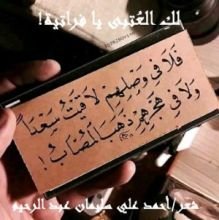 لك العُتبى يا فراتية!
فَلَا فِي وَصْلِهِمْ لَاقَيْتُ سَعْدًا
وَلَا فِي هَجْرِهِمْ ذَهَبَ المُصَابُ!
شعر/أحمد علي سليمان عبد الرحيم